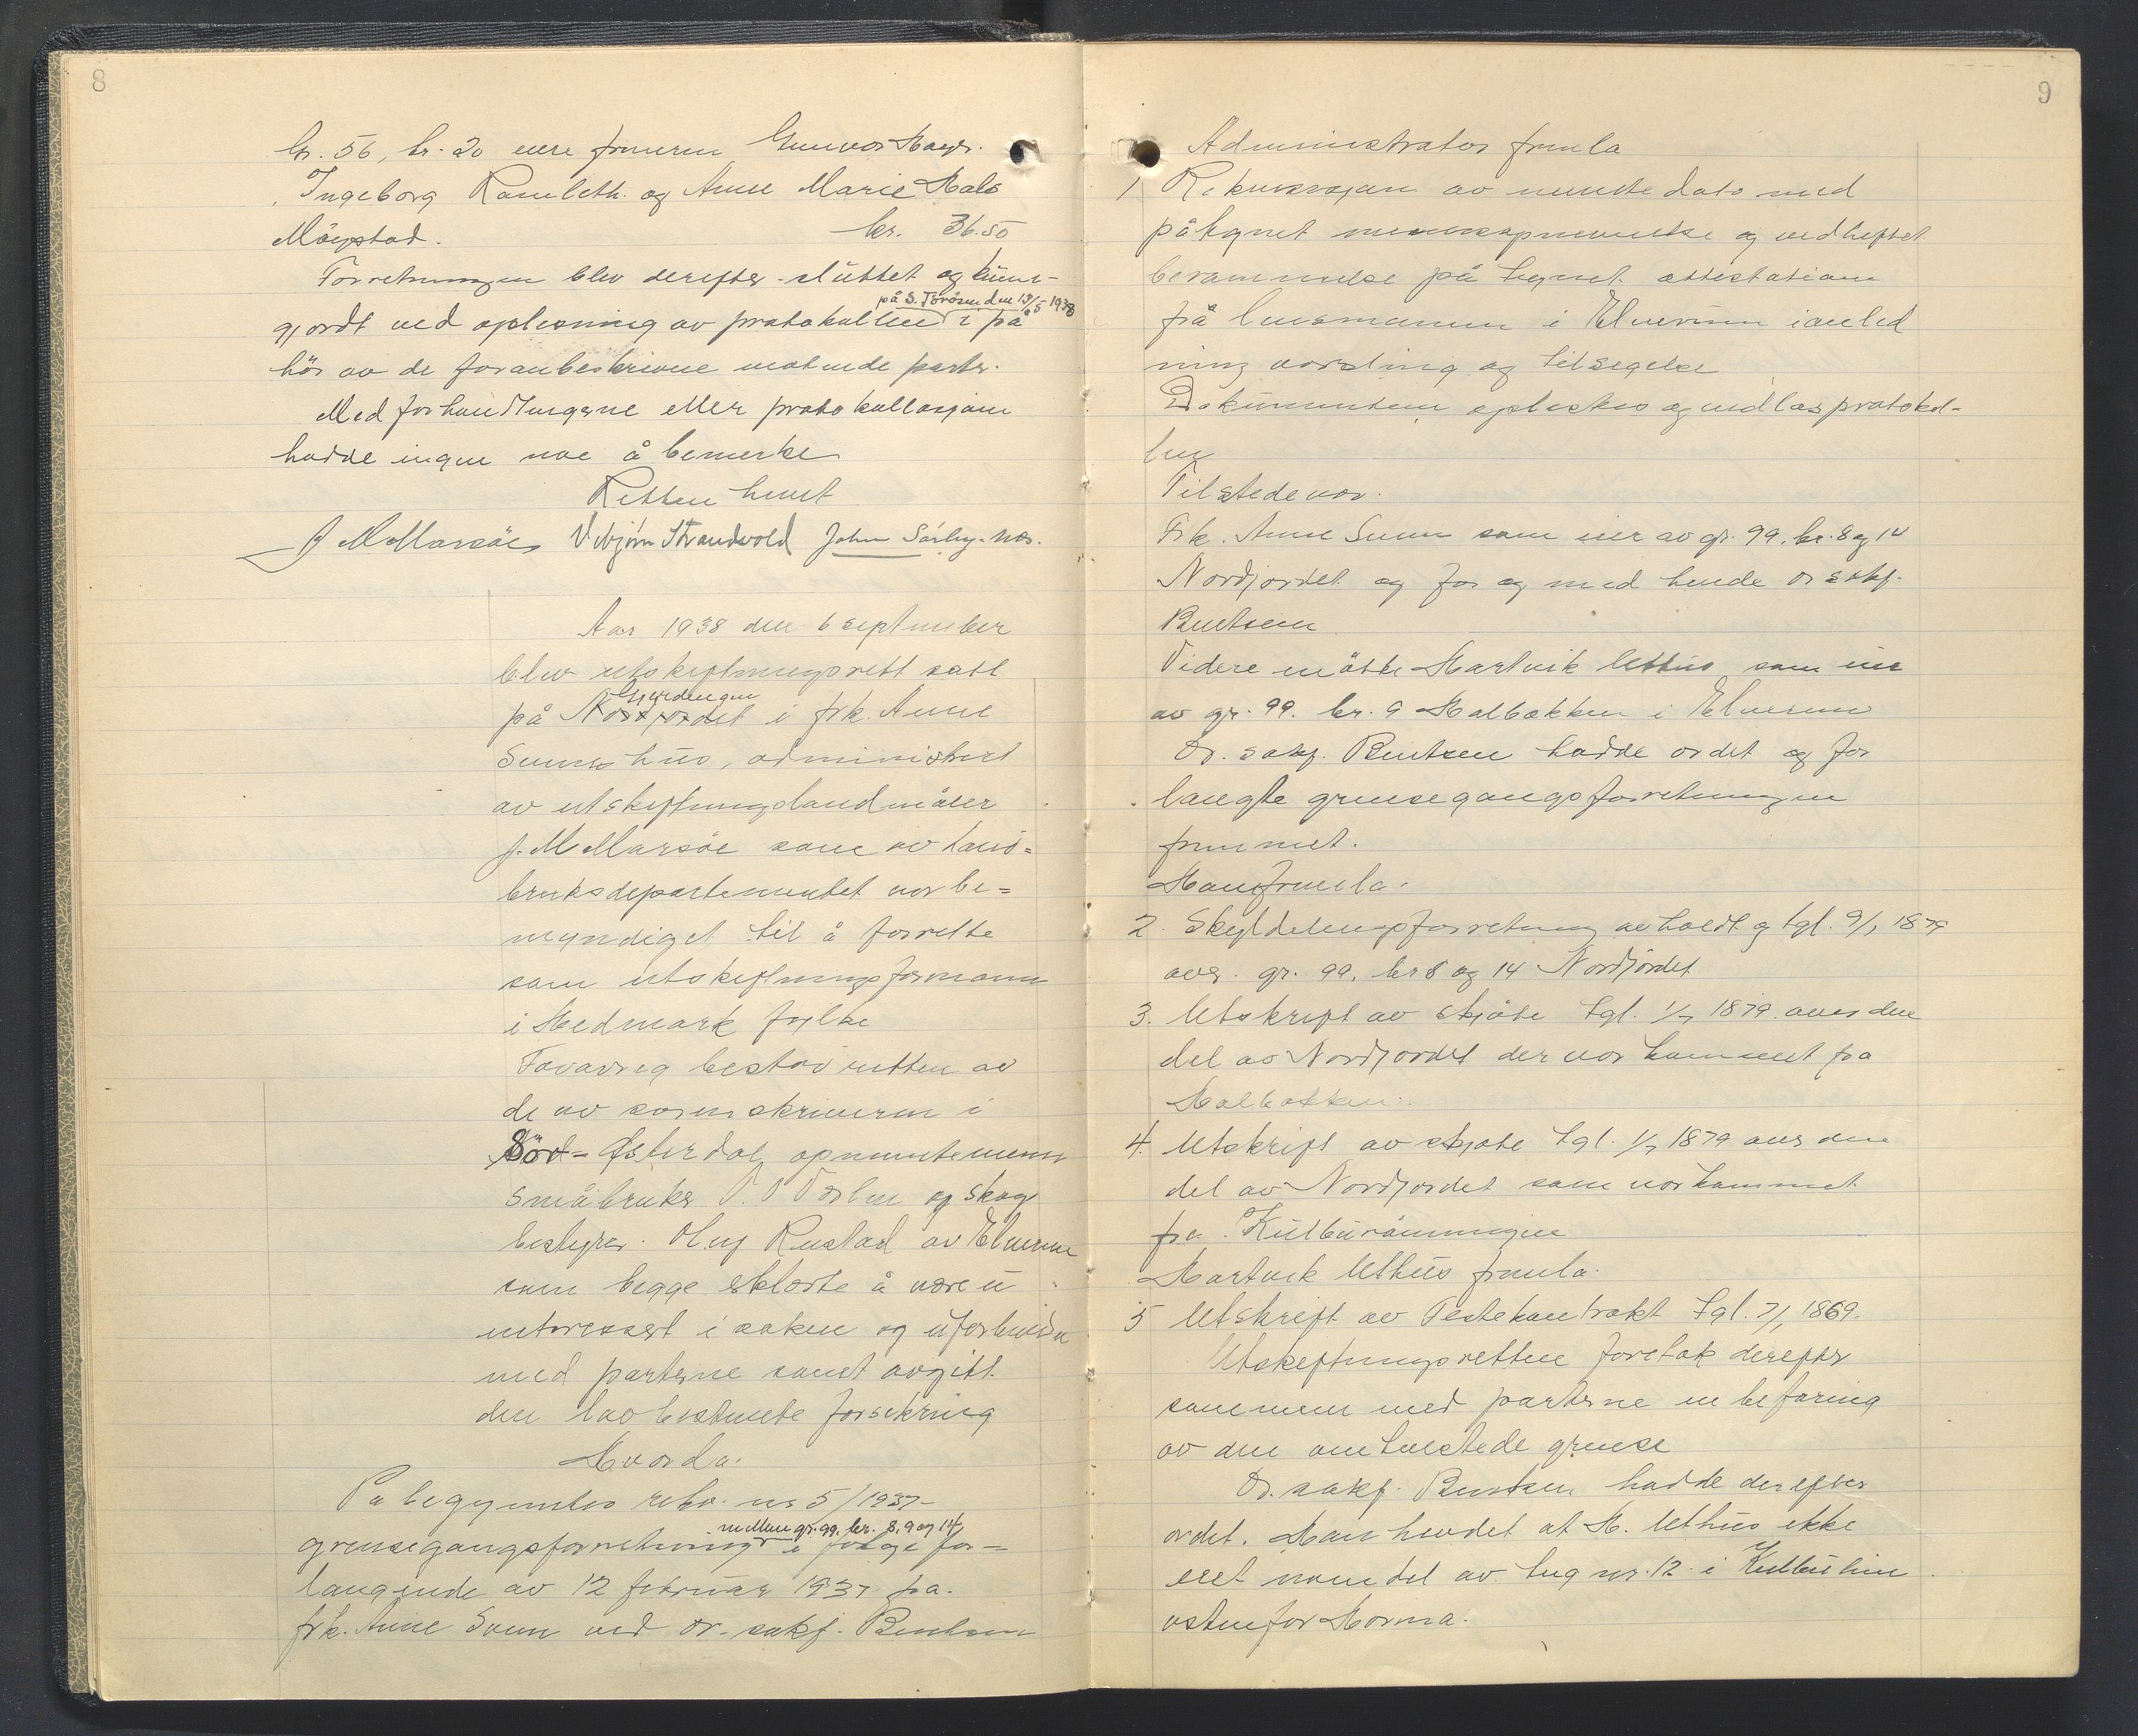 8
br. 56, br. 20 eiere fruerne Gunvor Hoyer.
Ingeborg Ramleth. og Anne Marie Hals
Mögstad. kr. 36.50
Forretningen blev derefter sluttet og kunn-
på S. Töråsen den 13/5 1938
gjordt ved oplesning av protokollen i på
hör av de foranbeskrevne møtende parter.
Med forhandlingene eller protokollasjonen
hadde ingen noe å bemerke
Retten hevet
J M Marsöe Vebjörn Strandvold John Sörby. nos.
Aar 1938 den 6 september
blev utskiftningsrett satt
Gjerdingen
på Nordjordet i frk. Anne
Svens hus, administrert
av utskiftningslandmåler
J. M Marsöe som av Land-
bruksdepartementet var be-
myndiget til å forrette
som utskiftningsformann
i Hedmark fylke
Forøvrig bestod retten av
de av sorenskriveren i
Sör-Østerdal opnevnte menn
småbruker O. O og skog
bestyrer Olaf Rustad av Elverum
som begge erklærte å være u
interessert i saken og uforbundne
med parterne samt avgitt
den lovbestemte forsikring
Hvorda.
Påbegyntes rekv. nr 5/1937-
mellem gr. 99. br. 8, 9 og 14
grensegangsforretning i følge for-
langende av 12 februar 1937 fra
frk. Anne Svenn ved or. sakf. Bentsen
9
Administrator fremla
1 Rekvisisjon av nevnte dato med
påtegnet mennsopnevnelse og vedheftet
berammelse på tegnet attestasjon
frå lensmannen i Elverum i anled
ning varsling og tilsigelse
Dokumentene oplestes og vedlas protokol-
len
Tilstede var.
Frk. Anne Svenn som eier av gr. 99, br. 8 og 14
Nordjordet og for og med hende or sakf.
Bentsen
Videre møtte Hartvik Uthus som eier
av gr. 99. br. 9 Halbakken i Elverum
Or. sakf. Bentsen hadde ordet og for
langte grensegangsforretningen
fremmet.
Han fremla.
2. Skylddelingsforretning avholdt og tgl. 9/1 1879
over gr. 99, br 8 og 14 Nordjordet
3. Utskrift av skjøte tgl. 1/7 1879. over den
del av Nordjordet der var kommet fra
Halbakken.
4. Utskrift av skjøte tgl. 1/7 1879 over den
del av Nordjordet som var kommet
fra Kulburönningen
Hartvik Uthus fremla.
5 Utskrift av Festekontrakt tgl. 7/1 1869.
Utskiftningsretten foretok derefter
sammen med parterne en befaring
av den omtvistede grense
Or. sakf. Bentsen hadde derefter
ordet. Han hevdet at H. Uthus ikke
eiet noen del av teig nr. 12 i Kulbulien
østenfor Horma.